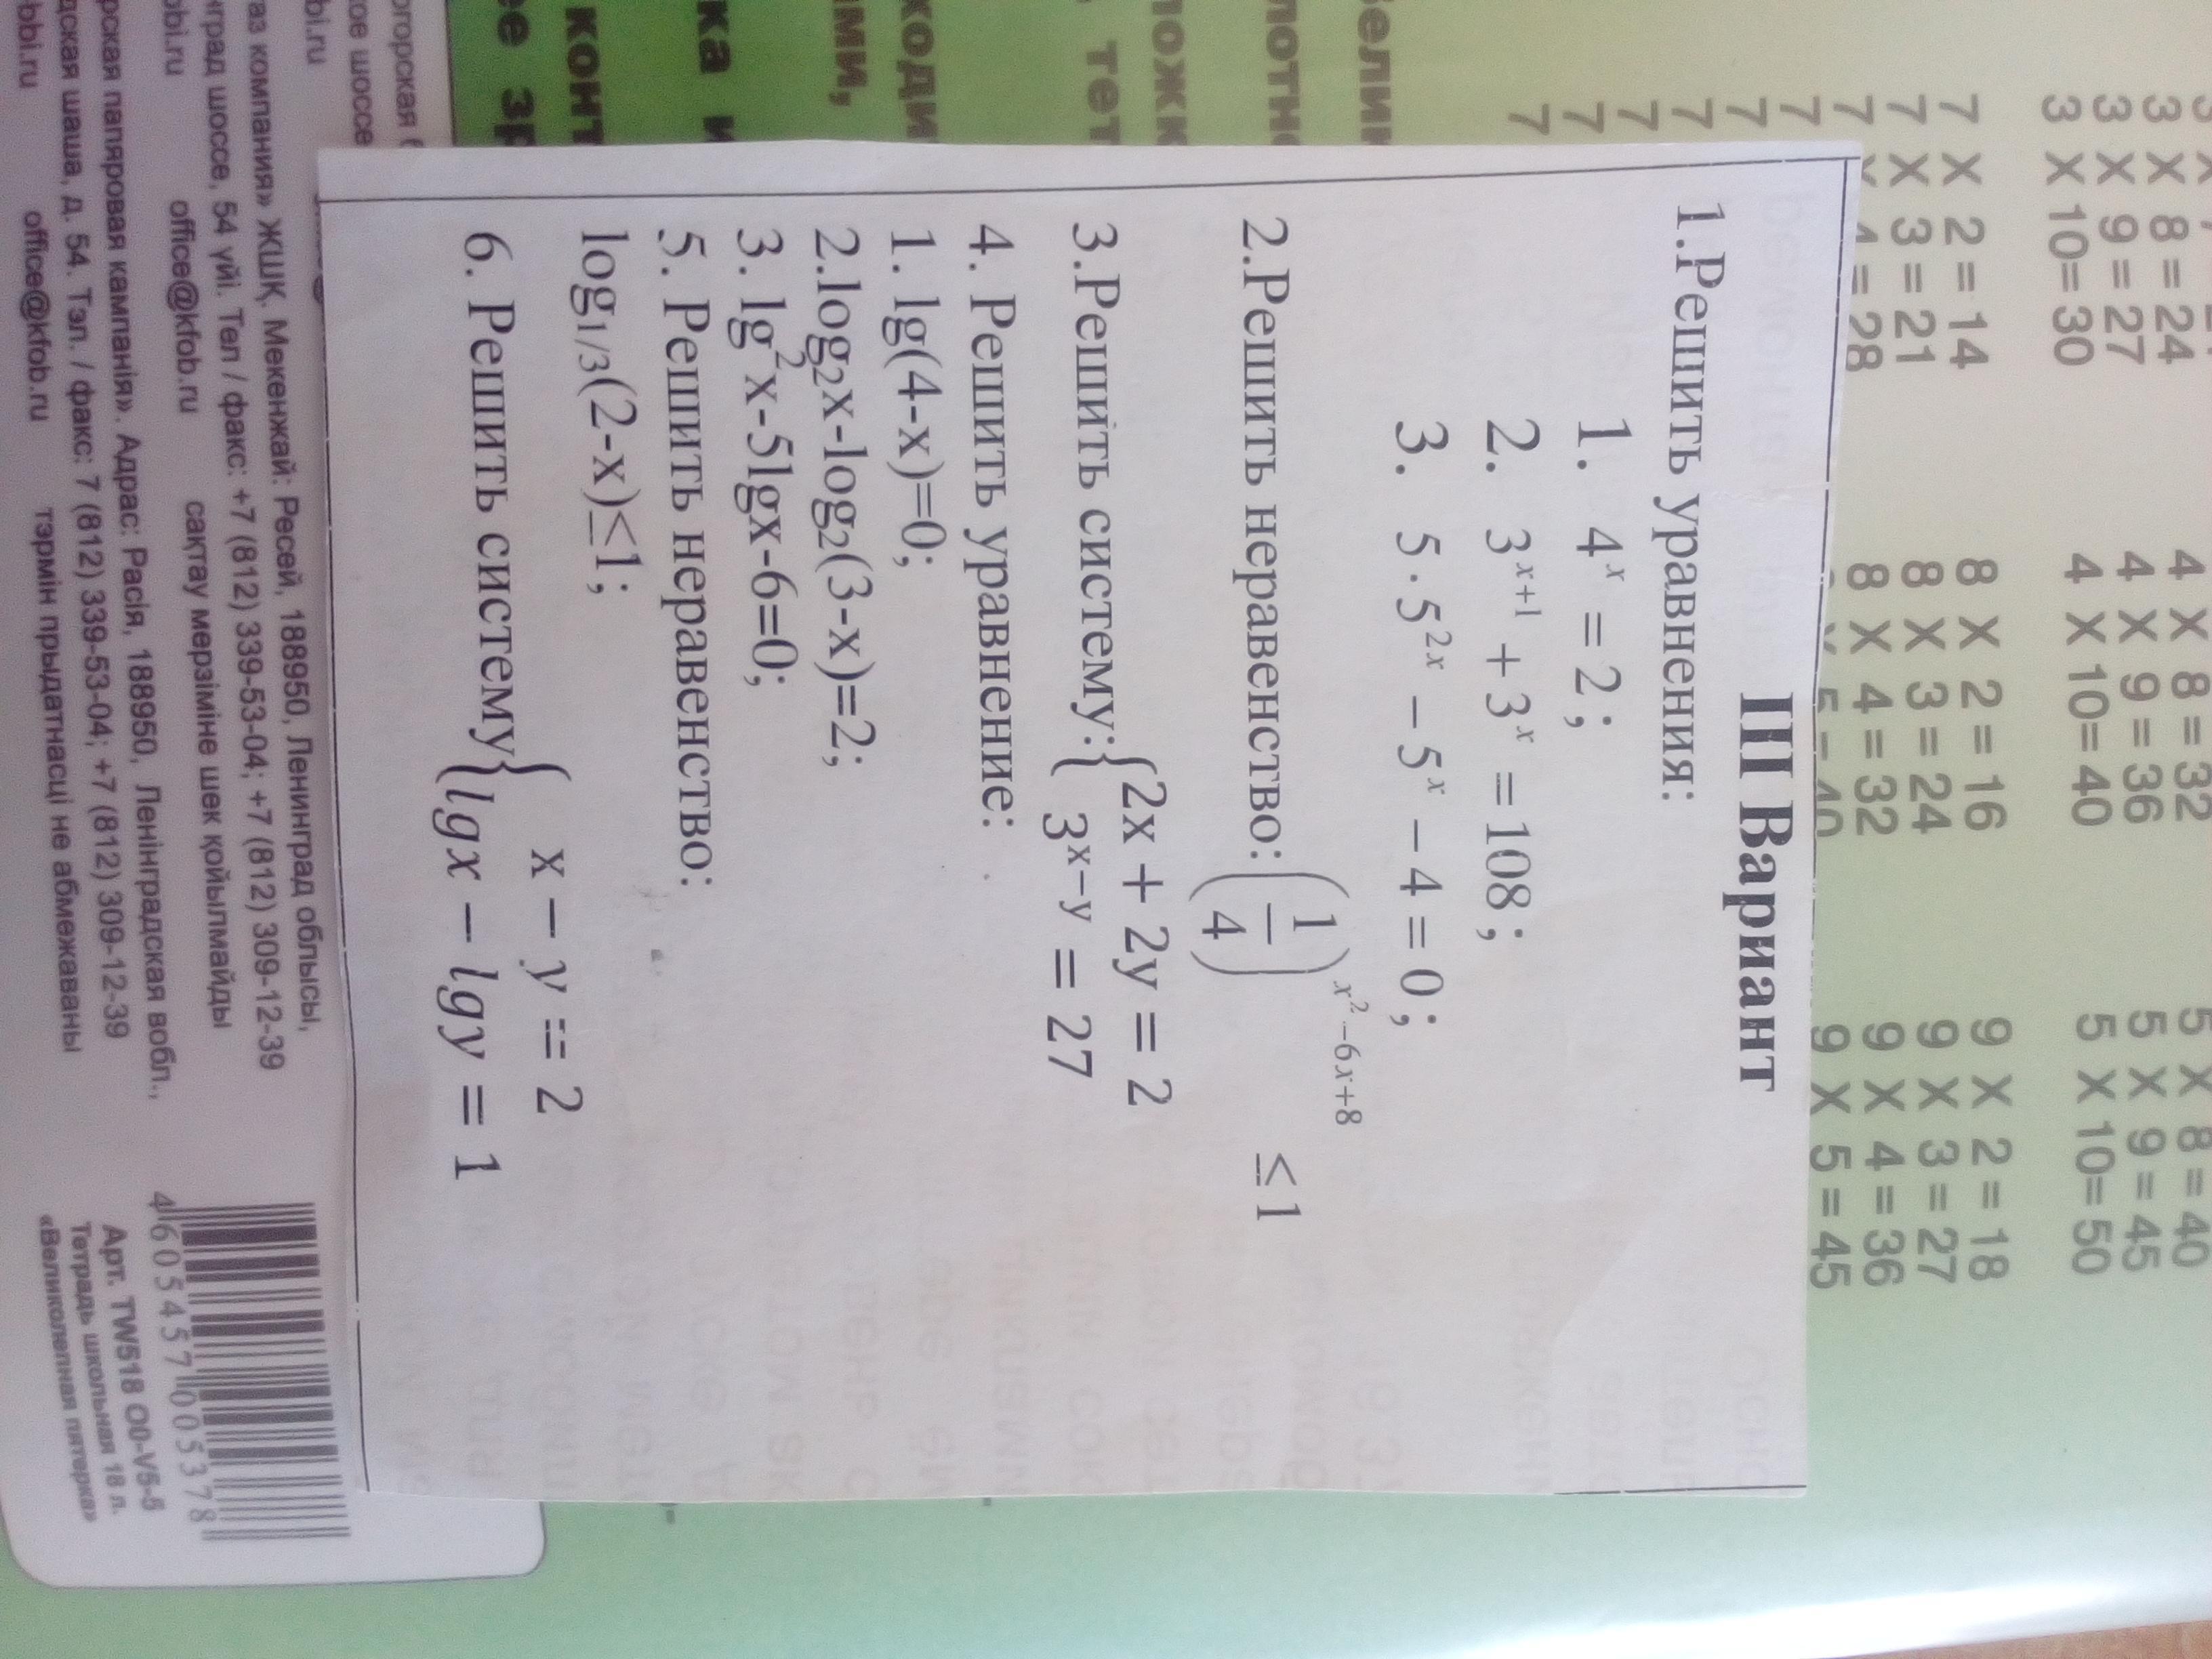 III Вариант
1.Решить уравнения:
1. 4^x = 2;
2. 3^{x+1} + 3^x = 108;
3. 5·5^{2x} − 5^x − 4 = 0;
2.Решить неравенство: (1/4)^{x²−6x+8} ≤ 1
3.Решить систему: { 2x + 2y = 2
3^{x−y} = 27
4. Решить уравнение:
1. lg(4-x)=0;
2.log₂x-log₂(3-x)=2;
3. lg²x-5lgx-6=0;
5. Решить неравенство:
log₁/₃(2-x)≤1;
6. Решить систему { x − y = 2
lgx − lgy = 1
3 X 8 = 24 4 X 8 = 32 5 X 8 = 40
3 X 9 = 27 4 X 9 = 36 5 X 9 = 45
3 X 10= 30 4 X 10= 40 5 X 10= 50
7 X 2 = 14 8 X 2 = 16 9 X 2 = 18
7 X 3 = 21 8 X 3 = 24 9 X 3 = 27
7 X 4 = 28 8 X 4 = 32 9 X 4 = 36
7 5 = 40 9 X 5 = 45
7
7
7
7
7
7
тет
ка и
конт
bi.ru
компания» ЖШҚ, Мекенжай: Ресей, 188950, Ленинград облысы,
шоссе, 54 үйі. Тел / факс: +7 (812) 339-53-04; +7 (812) 309-12-39
bbi.ru office@kfob.ru сақтау мерзіміне шек қойылмайды
папяровая кампанія». Адрас: Расія, 188950, Ленінградская вобл.,
шаша, д. 54. Тэл. / факс: 7 (812) 339-53-04; +7 (812) 309-12-39
bbi.ru office@kfob.ru тэрмін прыдатнасці не абмежаваны
4 605457 005378
Арт. TW518 O0-V5-5
Тетрадь школьная 18 л.
«Великолепная пятерка»